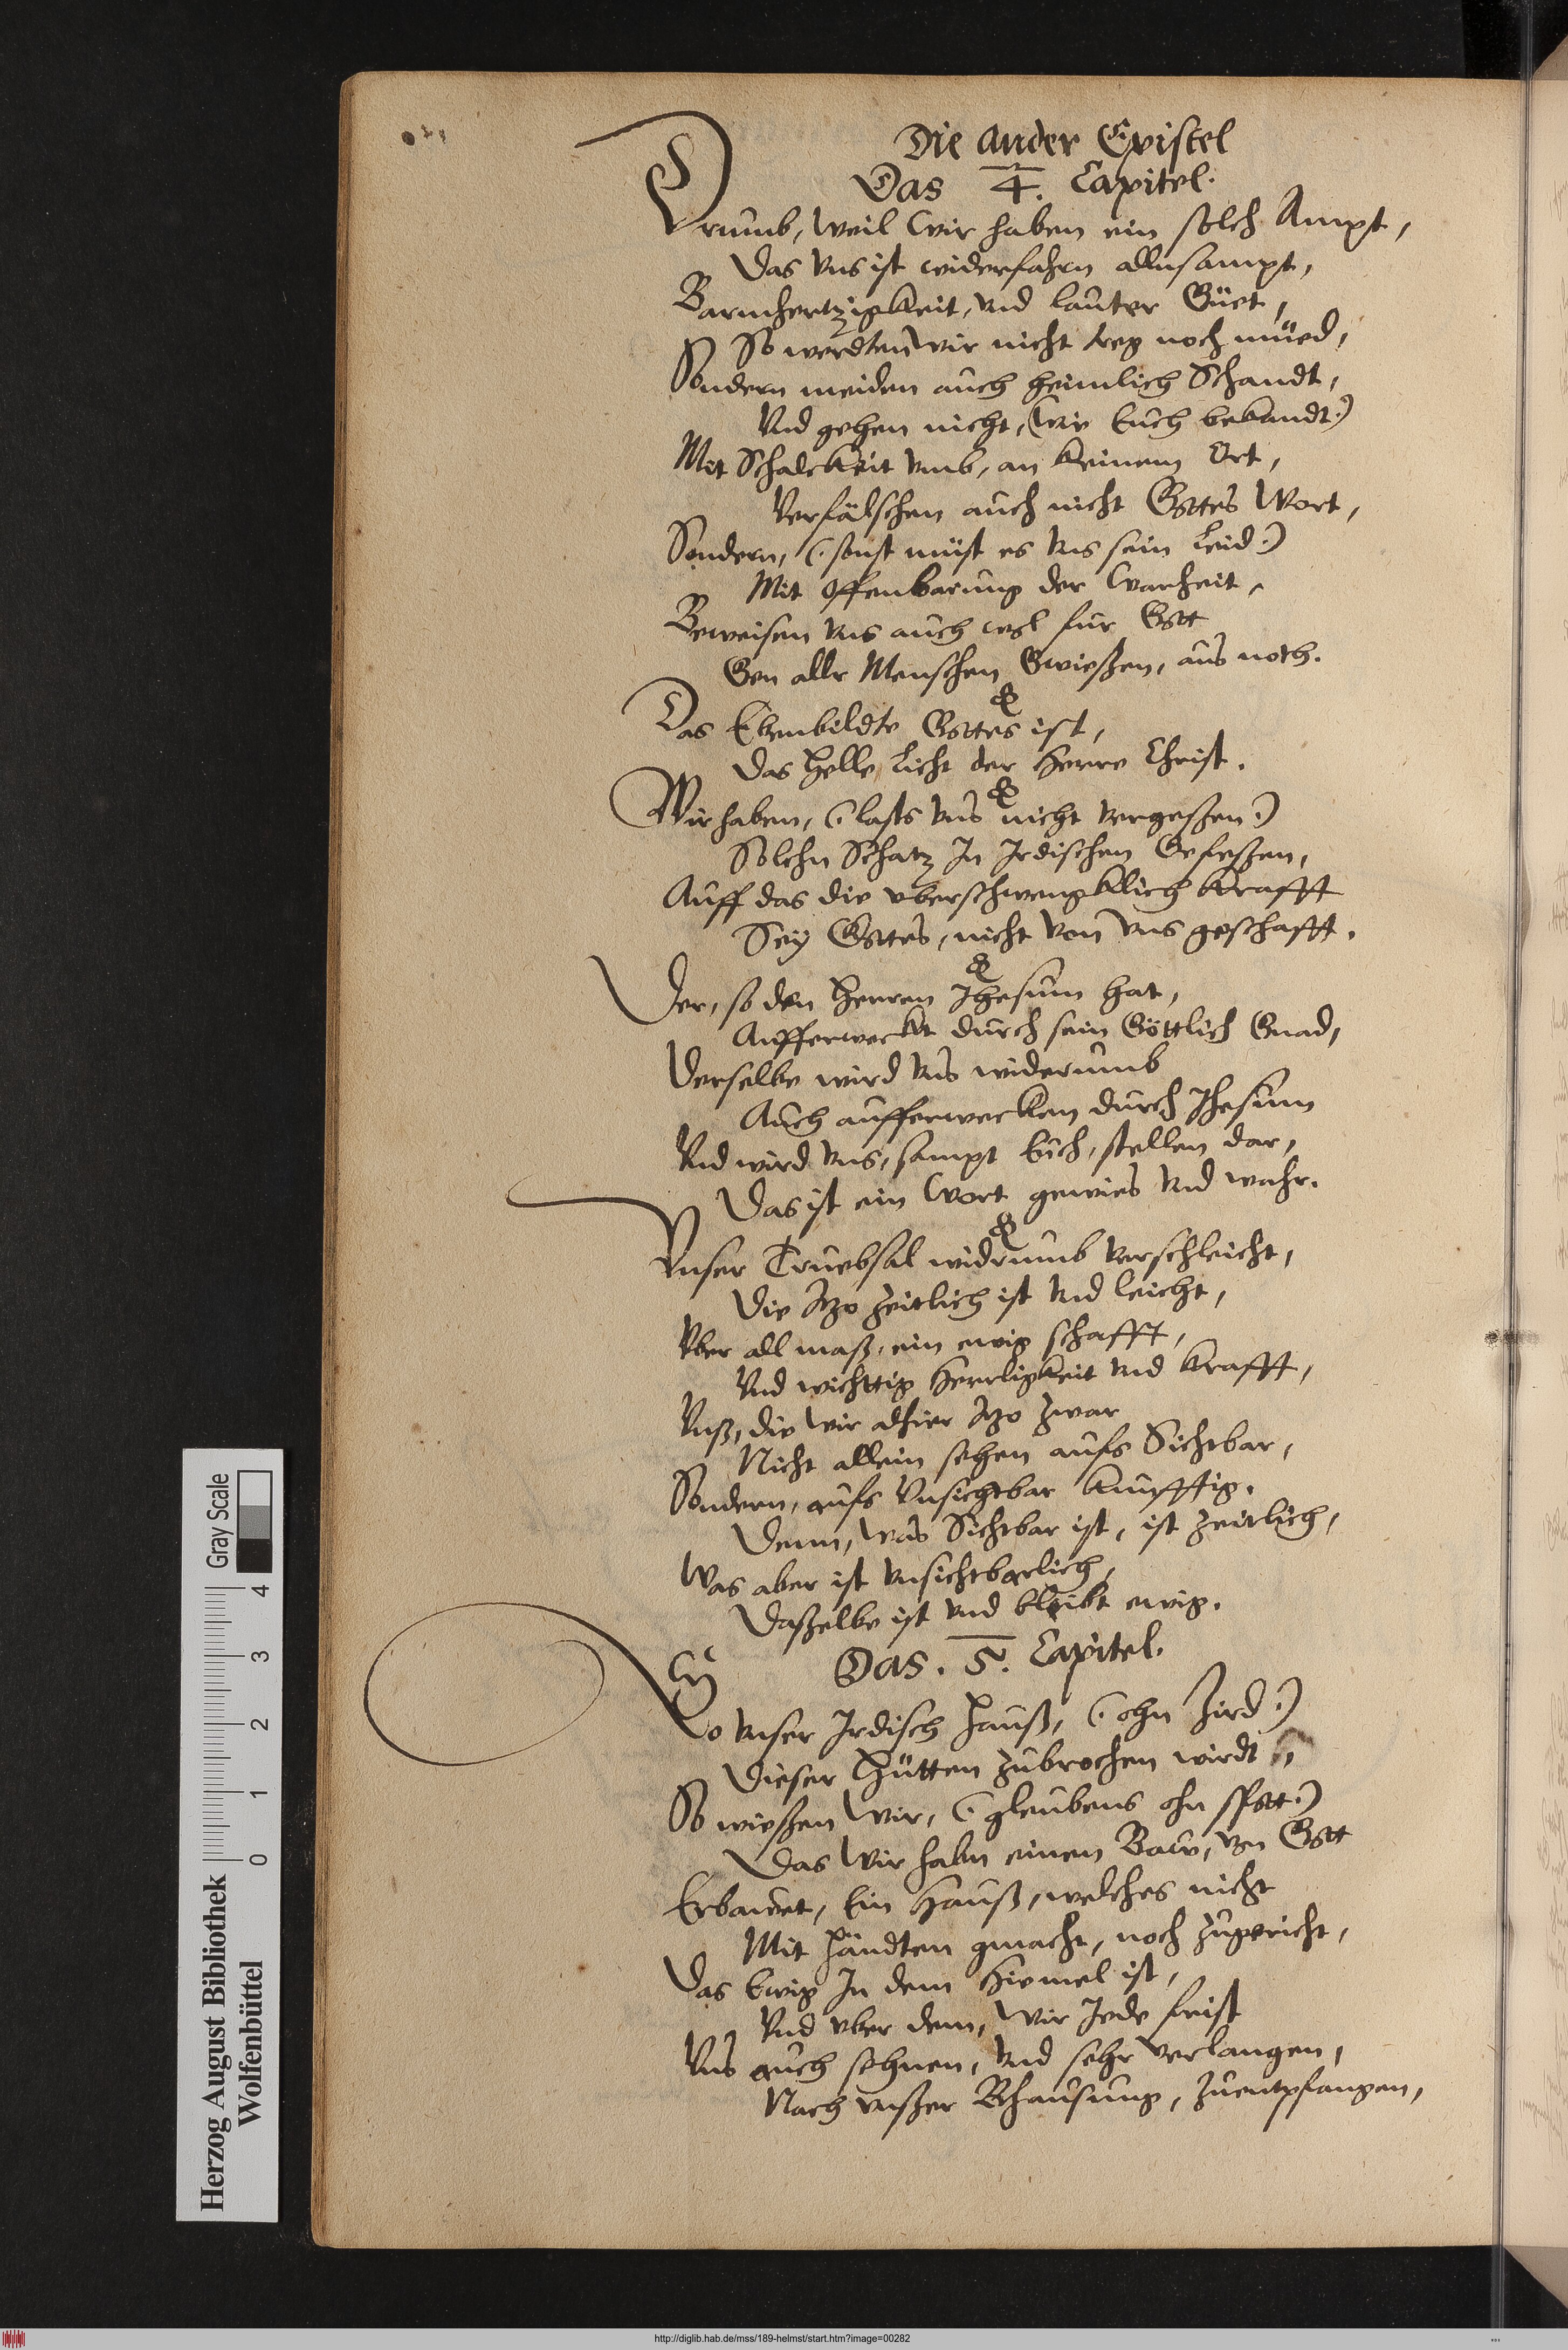 Die ander Epistel
Das 4. Capitel.
Drumb, weil wir haben ein solch Ampt,
Das vns ist widerfahrn allnsampt,
Barmhertzigkeit, vnd lauter Güet,
So werdten wir nicht treg noch müed,
Sondern meiden auch heimlich Schandt,
Vnd gehen nicht, (wie Euch bekandt.)
Mit Schalckeit vmb, an keinem Ort,
Verfälschen auch nicht Gottes Wort,
Sondern, (. sonst müst es vns sein leid.)
Mit Offenbarung der Warheit,
Beweisen vns auch wol für Gott
Gen aller Menschen Gwießen, aus noth.
Das Ebenbildte Gottes ist,
Das helle Licht der Herre Christ.
Wir haben, (. lasts vns nicht vergeßen.)
Solchn Schatz In Irdischen Gefeßen,
Auff das die vberschwengklich krafft
Sey Gottes, nicht von vns geschafft.
Der, so den Herren Jhesum hat,
Aufferweckt durch sein Göttlich Gnad,
Derselbe wird vns widerumb
Auch aufferwecken durch Jhesum
Vnd wird vns, sampt Euch, stellen dar,
Das ist ein Wort gewies vnd wahr.
Vnser Truebsal widrumb verschleicht,
Die Itzo zeitlich ist vnd leicht,
Vber all maß, ein ewig schafft,
Vnd wichttig Herrligkeit vnd krafft,
Vnß, die wir alhier Itzo zwar
Nicht allein sehen aufs Sichtbar,
Sondern, aufs Vnsichtbar künfftig.
Denn, was Sichtbar ist, ist zeitlich,
Was aber ist vnsichtbarlich,
Daßelbe ist vnd bleibt ewig.
Das. 5. Capitel.
So vnser Irdisch Hauß, (. ohn Zird.)
Dieser Hütten zubrochen wirdt,
So wießen wir, (. gleubens ohn spott.)
Das wir habn einen Baw, von Gott
Erbawet, Ein Hauß, welches nicht
Mit Händten gmacht, noch zugericht,
Das Ewig In dem Himel ist,
Vnd vber dem, wir Jede frist
Vns auch sehnen, vnd sehr verlangen,
Nach vnßer Bhausung, zuentpfangen,
Herzog August Bibliothek
Wolfenbüttel
0 1 2 3 4
Gray Scale
http://diglib.hab.de/mss/189-helmst/start.htm?image=00282